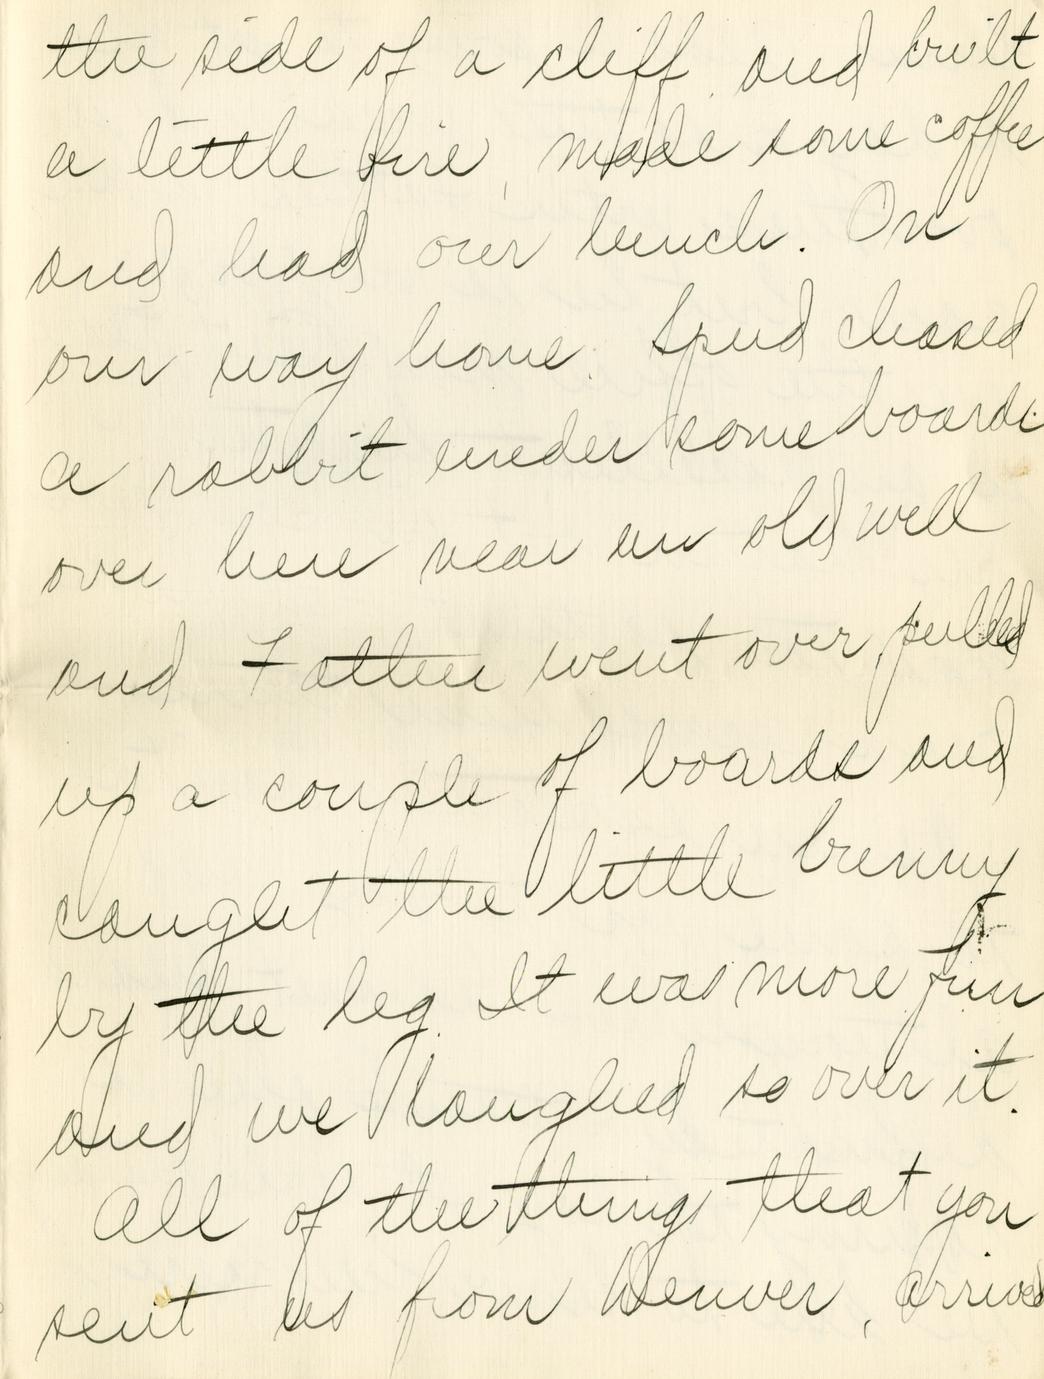 the side of a cliff and built
a little fire, made some coffee
and had our lunch. On
our way home. Spud chased
a rabbit under some boards
over here near an old well
and Father went over pulled
up a couple of boards and
caught the little bunny
by the leg. It was more fun
and we laughed so over it.
All of the things that you
sent us from Denver, arrived